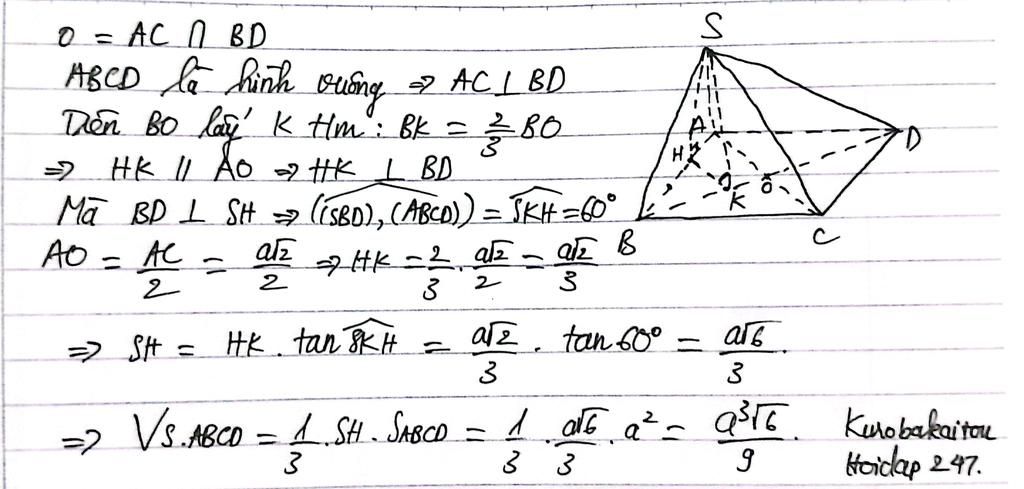 O = AC ∩ BD
ABCD là hình vuông ⇒ AC ⊥ BD
Trên BO lấy K t/m : BK = 2/3 BO
⇒ HK // AO ⇒ HK ⊥ BD
Mà BD ⊥ SH ⇒ ((SBD), (ABCD)) = SKH = 60°
AO = AC/2 = a√2/2 ⇒ HK = 2/3 . a√2/2 = a√2/3
⇒ SH = HK . tan SKH = a√2/3 . tan 60° = a√6/3 .
⇒ VS.ABCD = 1/3 . SH . SABCD = 1/3 . a√6/3 . a² = a³√6/9 .
Kurobakaitou
Hoidap 247.
S
A
D
H
K
O
B
C